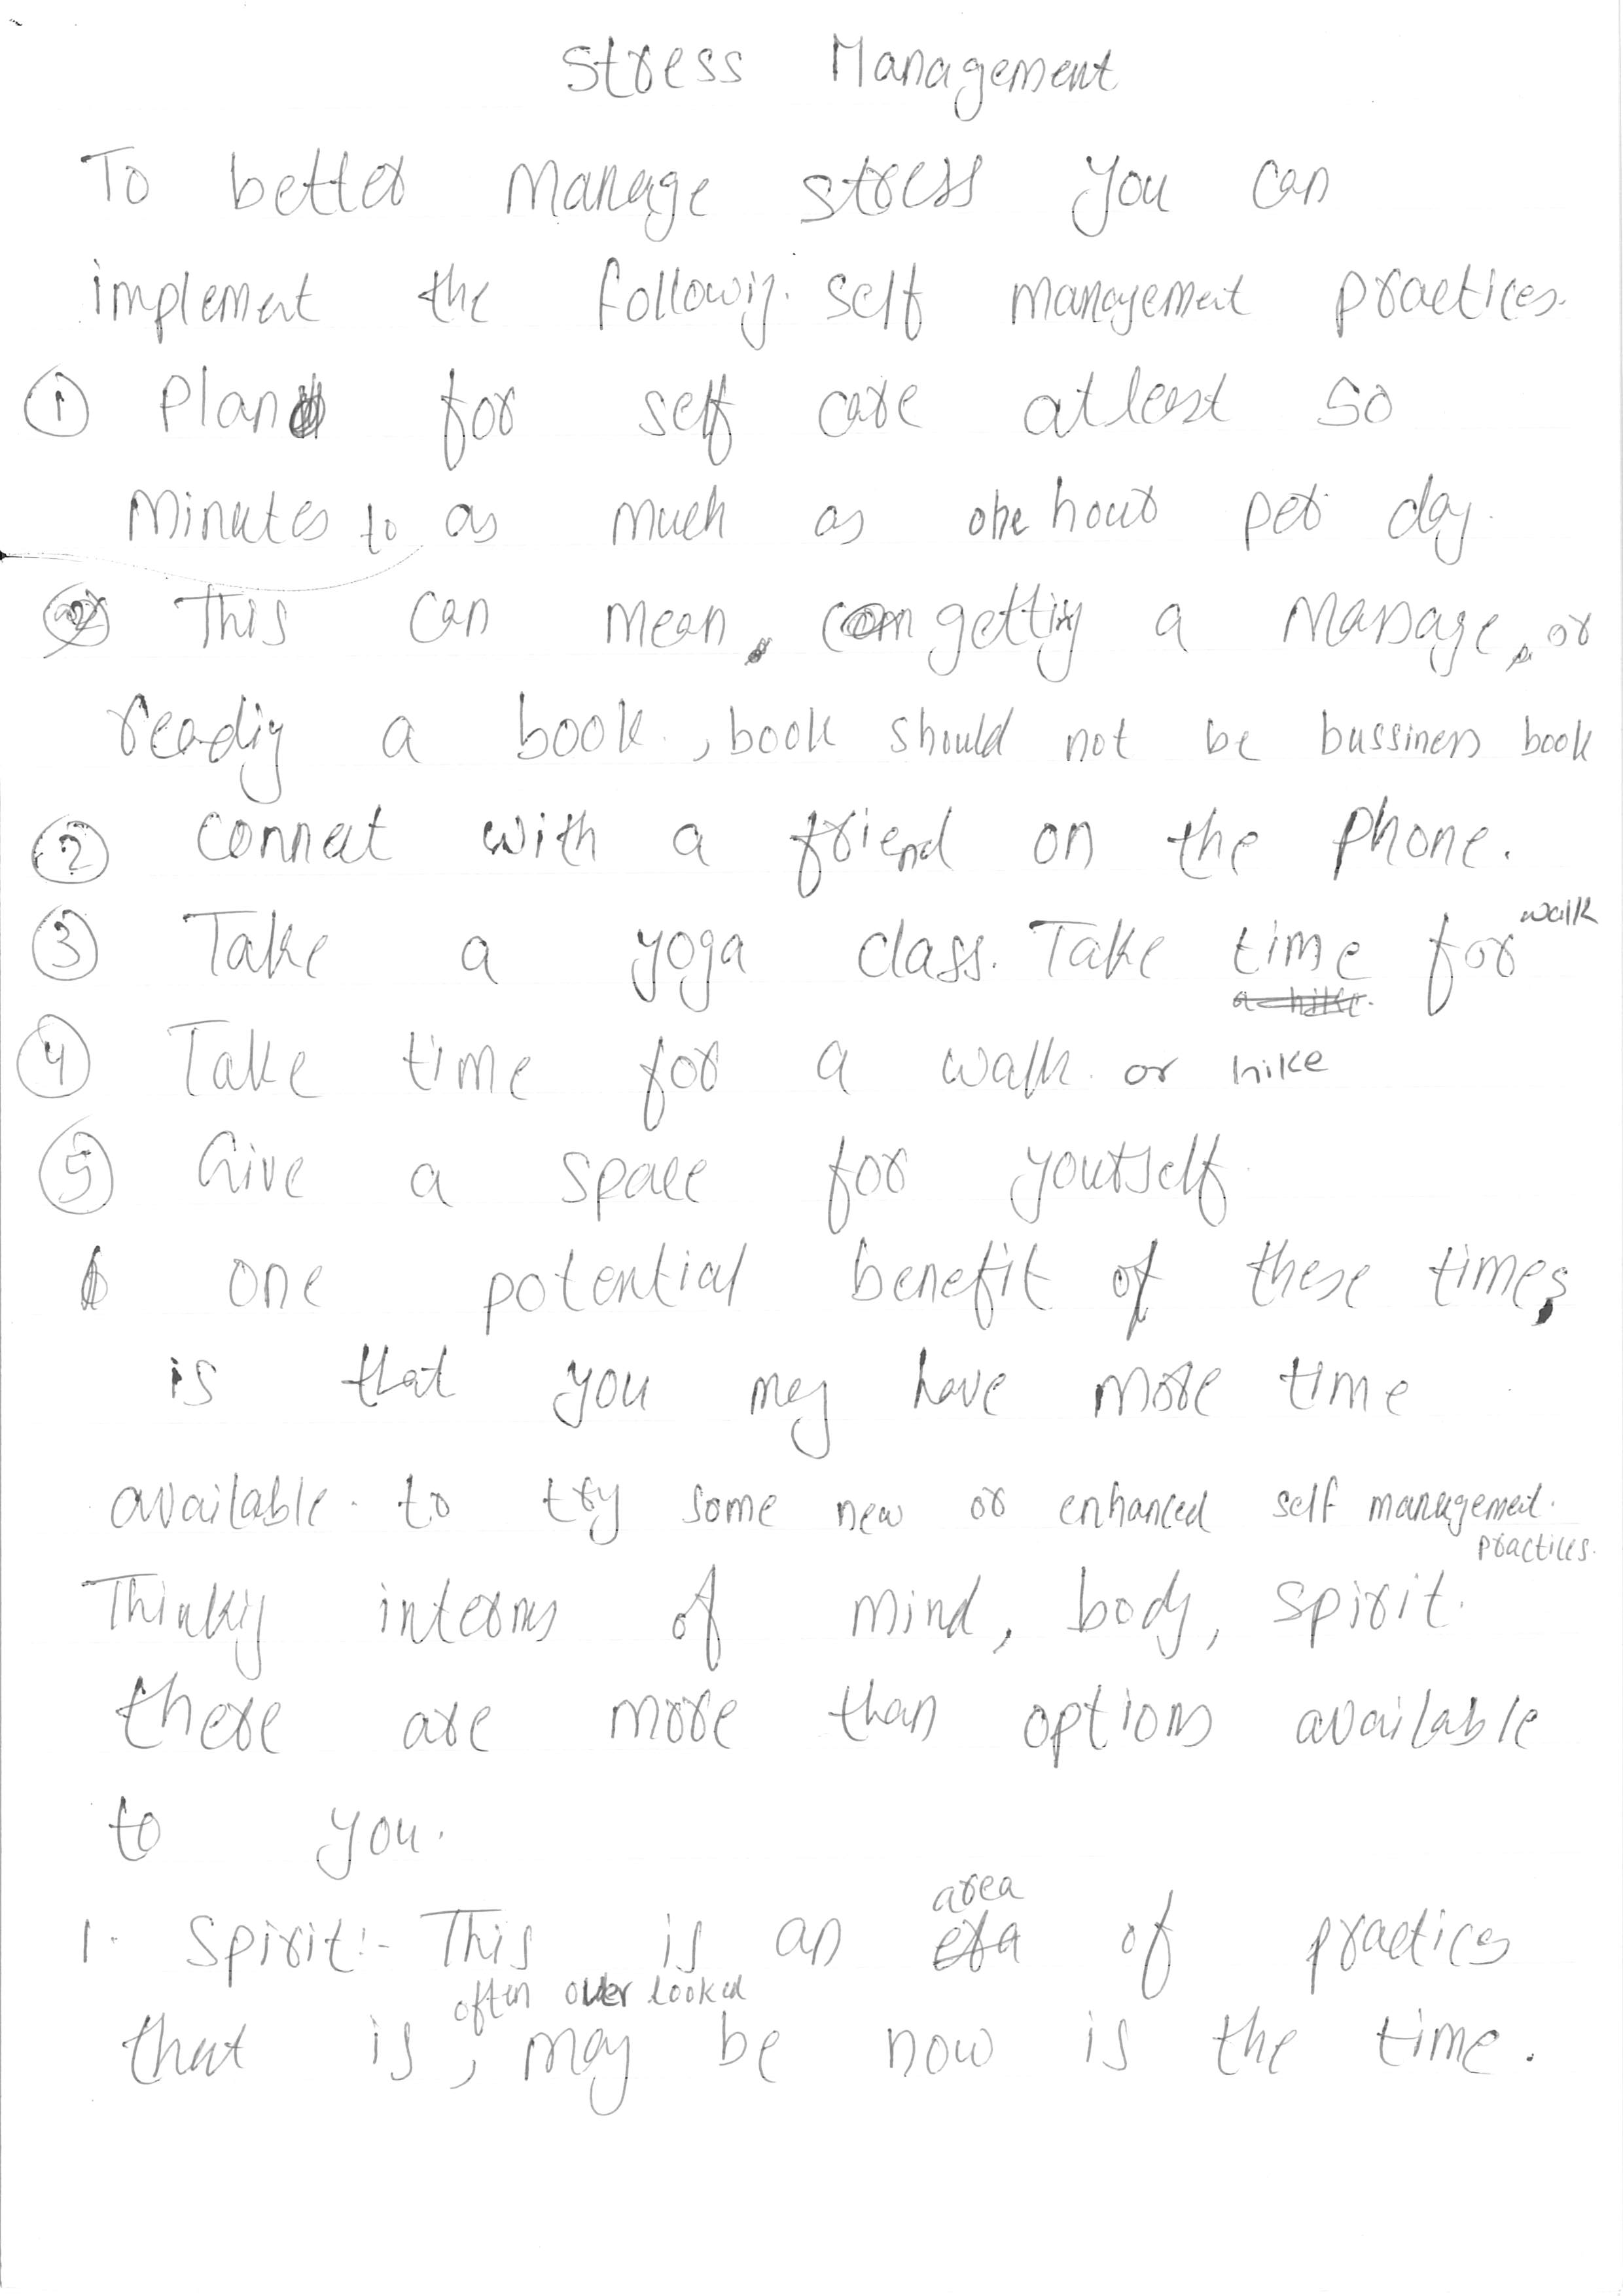 Stress Management
To better manage stress you can
implement the followig. self management practices.
① Plan for self care atleast 50
minutes to as much as one hour per day.
This can mean, gettig a massage, or
readig a book, book should not be bussiness book
② connect with a friend on the phone.
③ Take a yoga class. Take time for walk
④ Take time for a walk. or hike
⑤ Give a space for yourself.
one potential benefit of these times,
is that you may have more time
available. to try some new or enhanced self management.
practices.
Thinkig interms of mind, body, spirit.
there are more than options available
to you.
1. Spirit:- This is an area of practices
that is often over looked, may be now is the time.